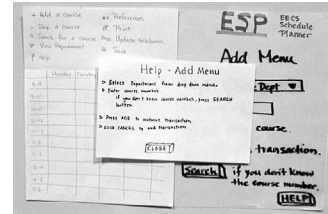 + Add a course
- Drop a course
Search for a course
View Requirement
? Help
Preferences
Print
Update telebears
Save
Monday Tuesday
Help - Add Menu
▹ Select Department from drop down menu.
▹ Enter course number.
if you don't know course number, press SEARCH
button
▹ Press ADD to continue transaction
▹ Click CANCEL to end transaction
CLOSE
ESP EECS
Schedule
Planner
Add Menu
Dept ▼
course.
transaction.
Search if you don't know
the course number.
HELP